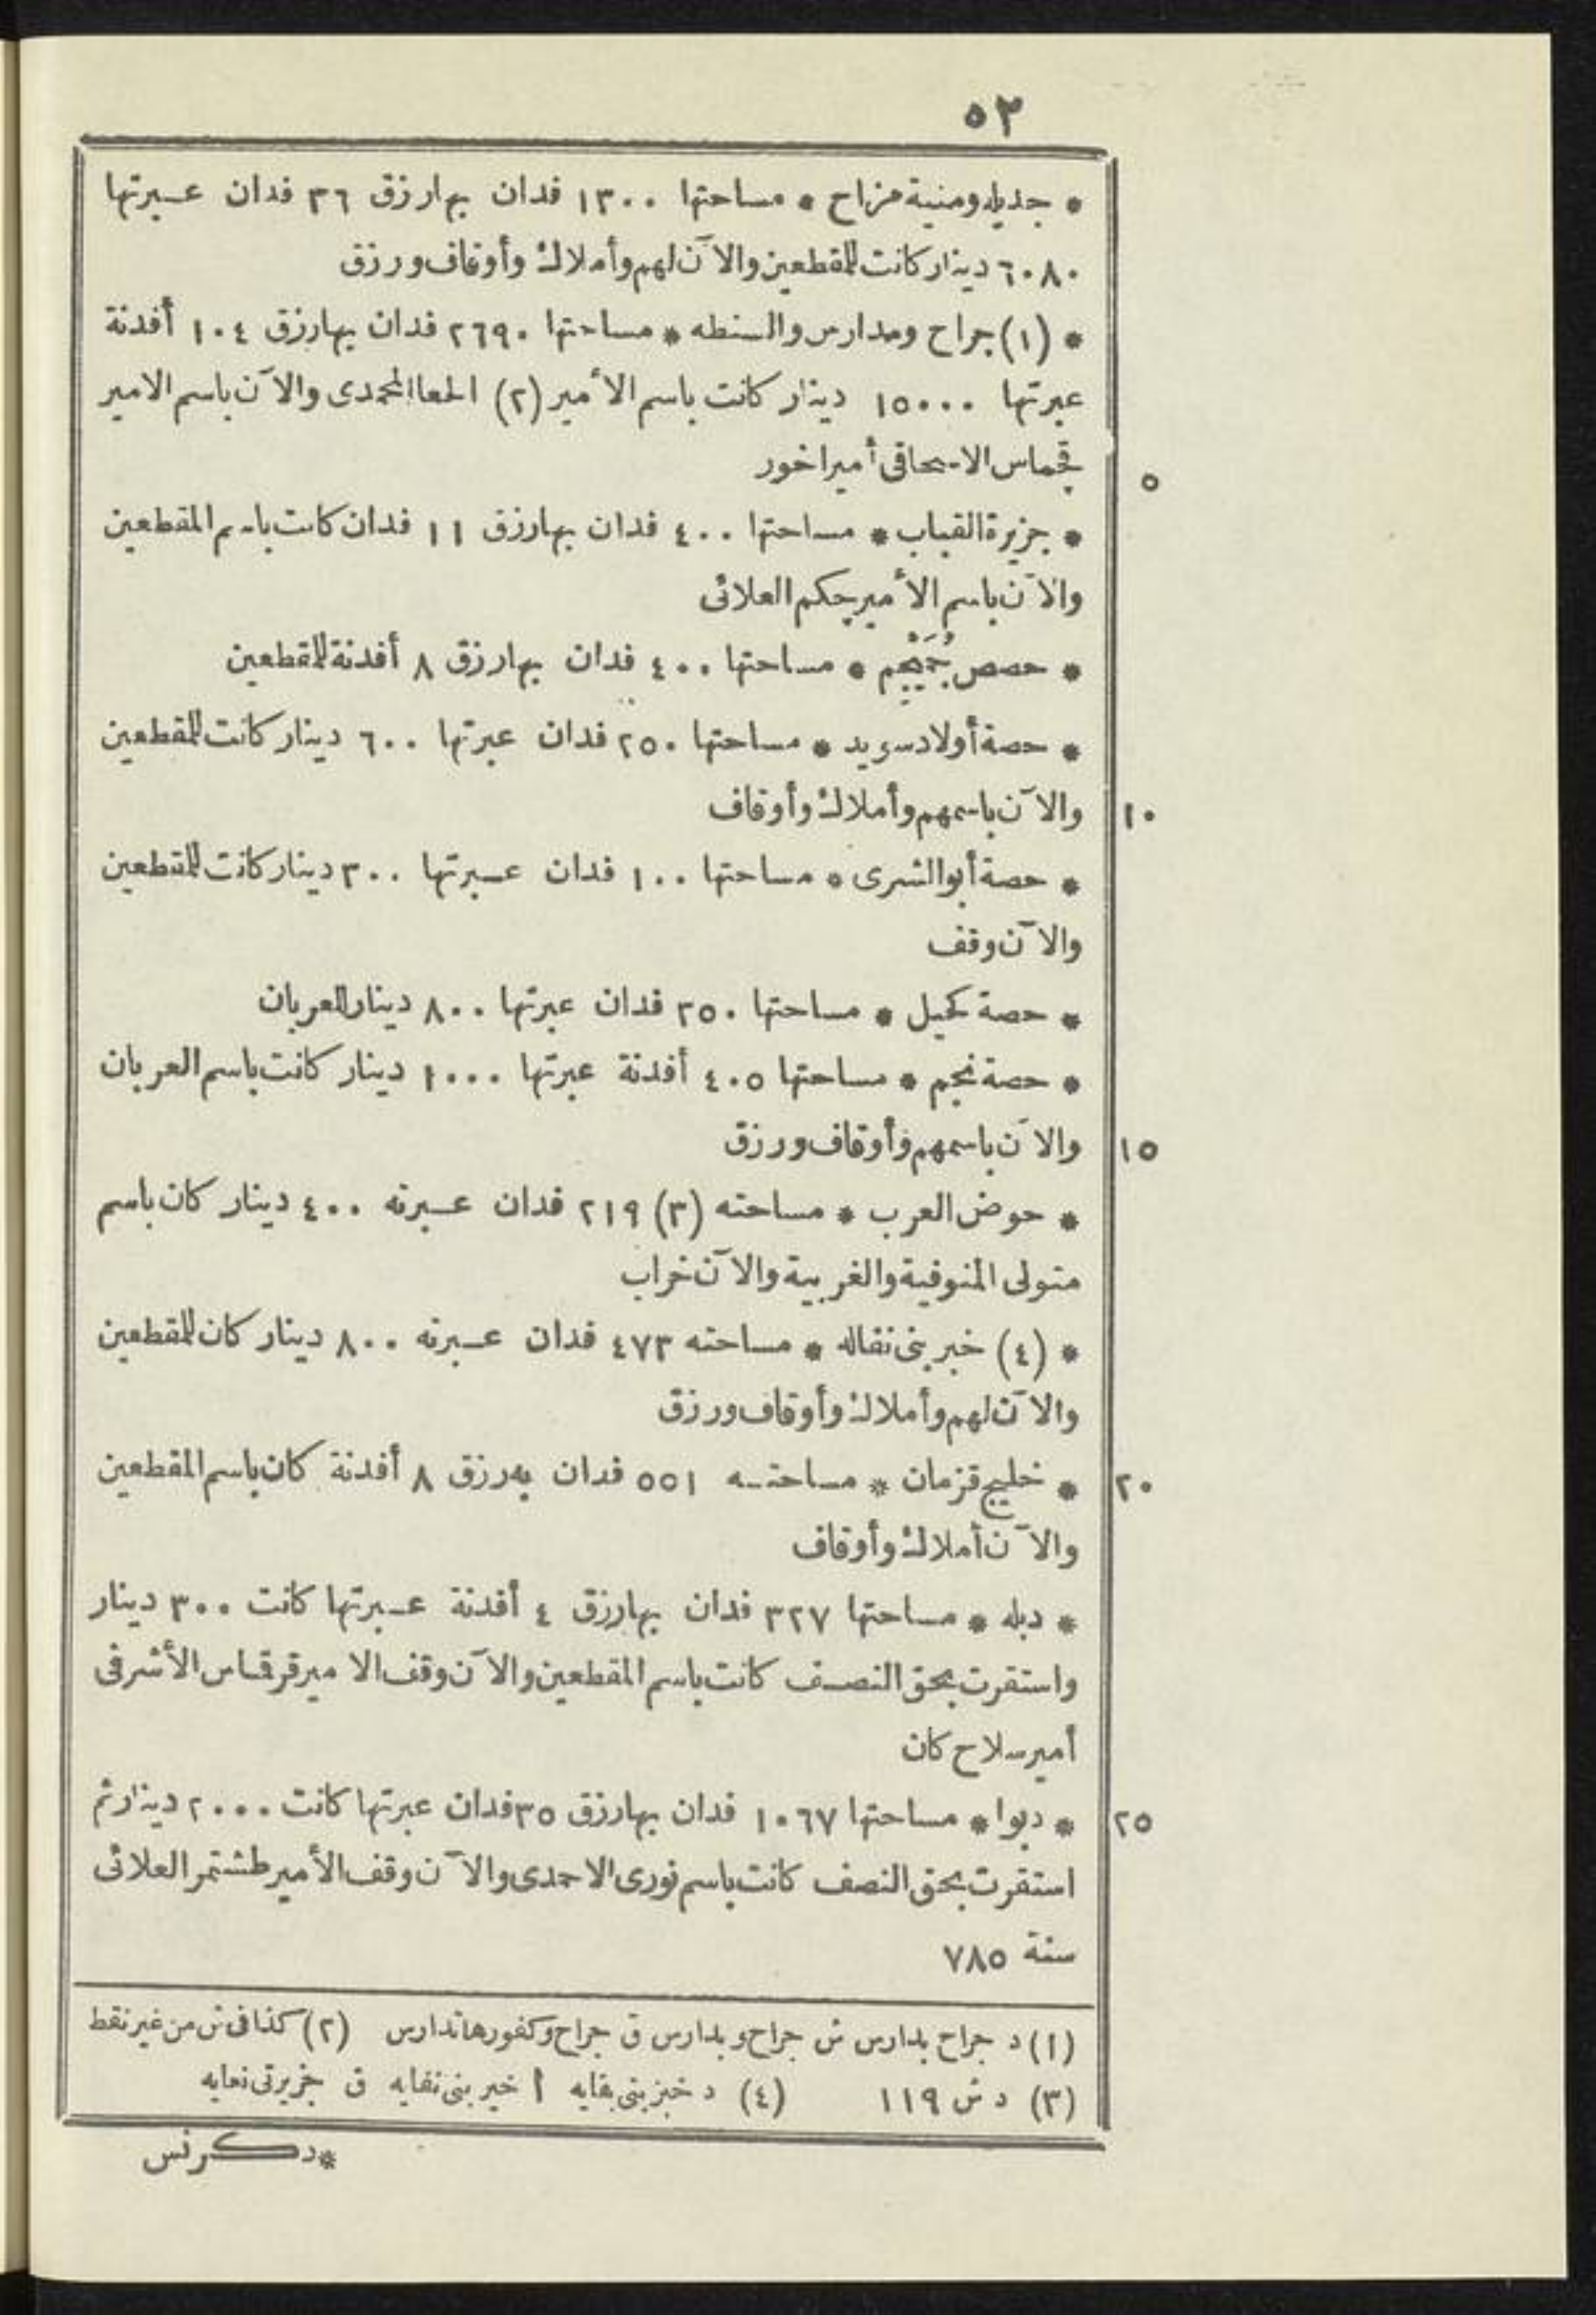 ٥٢
* جديله ومنية مزاح * مساحتها ١٣٠٠ فدان بها رزق ٣٦ فدان عبرتها
٦٠٨٠ دينار كانت للمقطعين والآن لهم وأملاك وأوقاف ورزق
* (١) جراح ومدارس والسنطه * مساحتها ٢٦٩٠ فدان بها رزق ١٠٤ أفدنة
عبرتها ١٥٠٠٠ دينار كانت باسم الأمير (٢) المحمدى والآن باسم الامير
قجماس الاسحاقى أمير اخور
٥
* جزيرة القباب * مساحتها ٤٠٠ فدان بها رزق ١١ فدان كانت باسم المقطعين
والآن باسم الأمير جكم العلائى
* حصص * مساحتها ٤٠٠ فدان بها رزق ٨ أفدنة للمقطعين
* حصة أولاد سويد * مساحتها ٢٥٠ فدان عبرتها ٦٠٠ دينار كانت للمقطعين
والآن باسمهم وأملاك وأوقاف
١٠
* حصة أبو الشرى * مساحتها ١٠٠ فدان عبرتها ٣٠٠ دينار كانت للمقطعين
والآن وقف
* حصة كحيل * مساحتها ٢٥٠ فدان عبرتها ٨٠٠ دينار للعربان
* حصة نجم * مساحتها ٤٠٥ أفدنة عبرتها ١٠٠٠ دينار كانت باسم العربان
والآن باسمهم وأوقاف ورزق
١٥
* حوض العرب * مساحته (٣) ٢١٩ فدان عبرته ٤٠٠ دينار كان باسم
متولى المنوفية والغربية والآن خراب
* (٤) خبر بنى نفاله * مساحته ٤٧٣ فدان عبرته ٨٠٠ دينار كان للمقطعين
والآن لهم وأملاك وأوقاف ورزق
* خليج قزمان * مساحته ٥٥١ فدان به رزق ٨ أفدنة كان باسم المقطعين
٢٠
والآن أملاك وأوقاف
* دبله * مساحتها ٣٢٧ فدان بها رزق ٤ أفدنة عبرتها كانت ٣٠٠ دينار
واستقرت بحق النصف كانت باسم المقطعين والآن وقف الامير قرقماس الأشرفى
أمير سلاح كان
* دبوا * مساحتها ١٠٦٧ فدان بها رزق ٣٥ فدان عبرتها كانت ٢٠٠٠ دينار ثم
٢٥
استقرت بحق النصف كانت باسم نورى الاحمدى والآن وقف الأمير طشتمر العلائى
سنة ٧٨٥
(١) د جراح بدارس ش جراح و بدارس ق جراح وكفورها تدارس (٢) كذا فى ش من غير نقط
(٣) د ش ١١٩ (٤) د خبز بنى بقايه أ خير بنى نفايه ق
*دكرنس